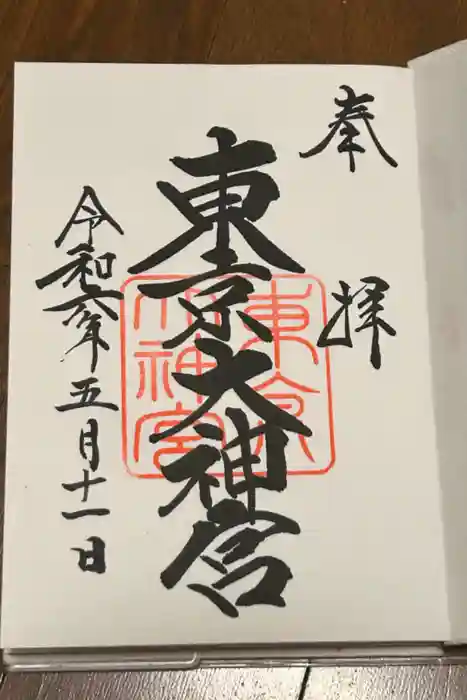 奉拝
東京大神宮
東京大神宮
令和六年五月十一日